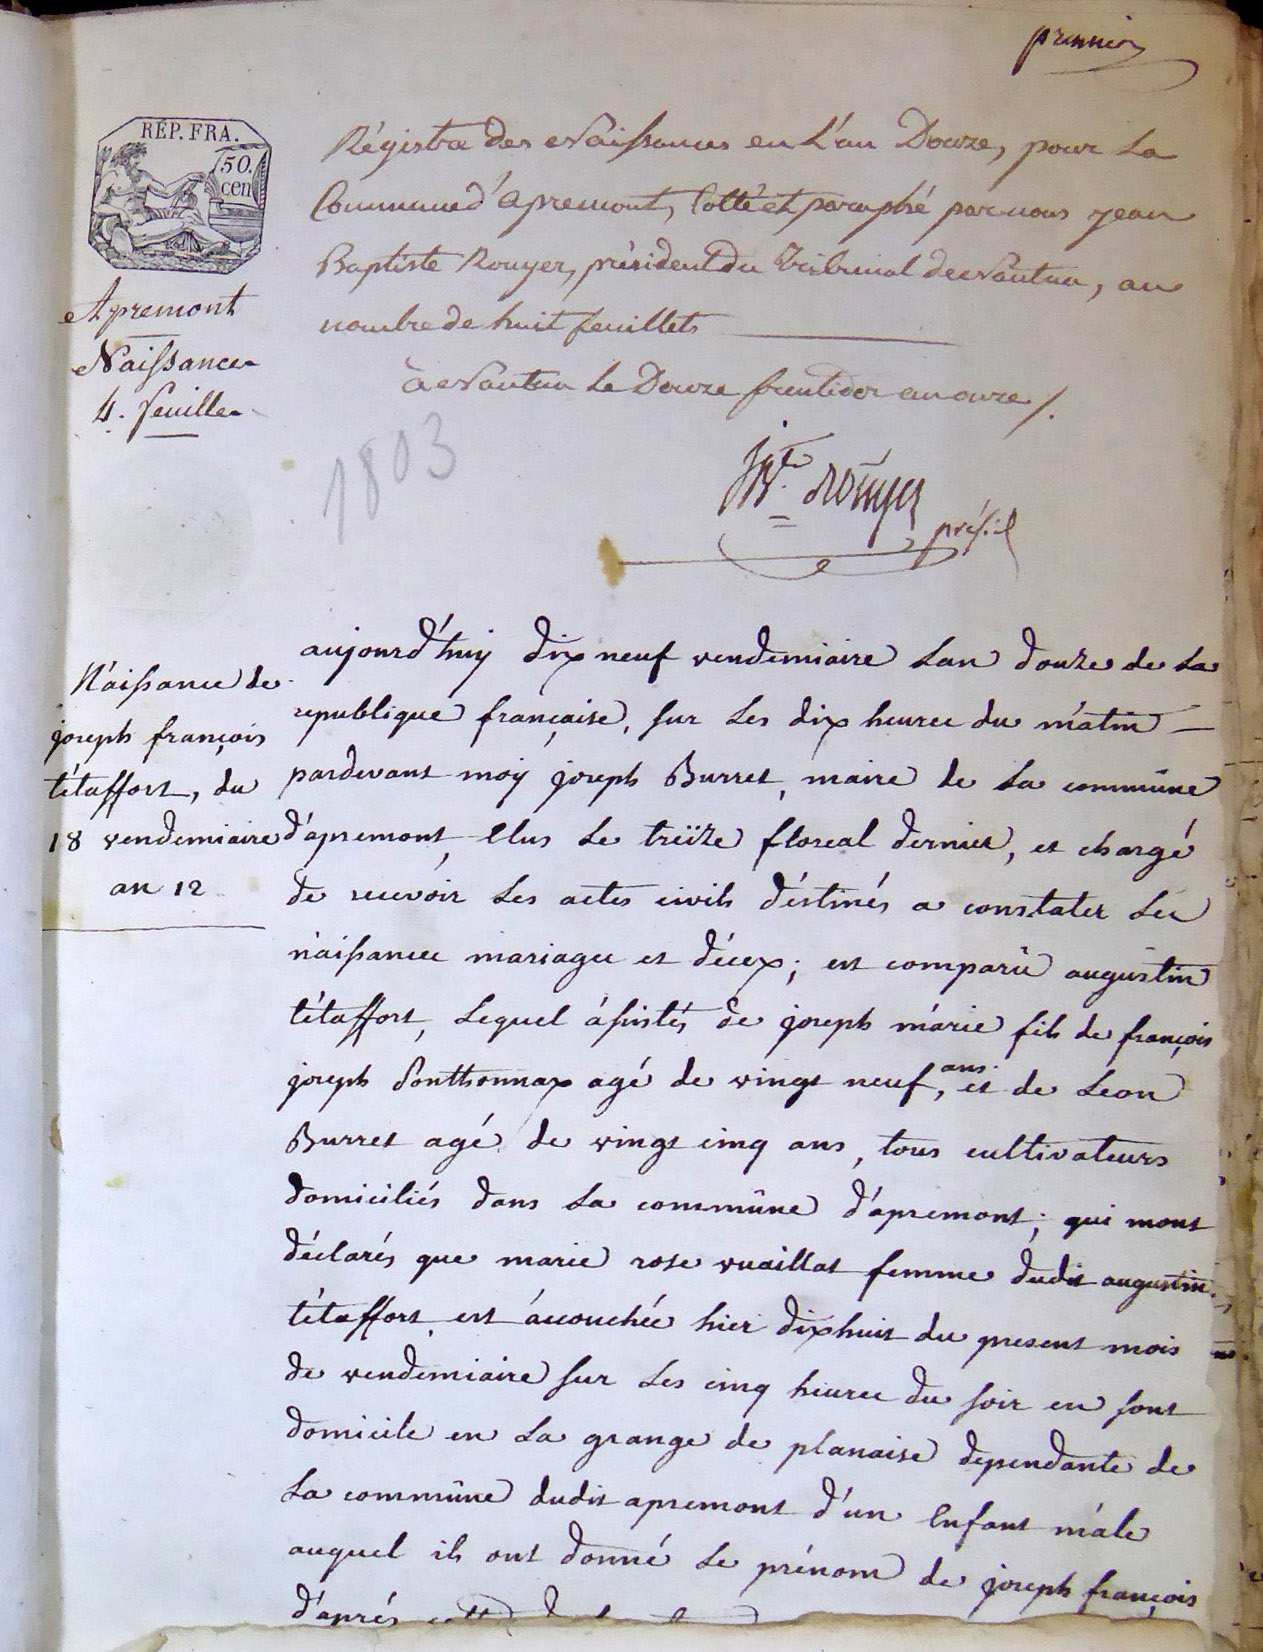 premier
RÉP. FRA.
50.
cen
Régistre des Naissances en L'an Douze, pour La
Commune d'Apremont, Cotté et paraphé par nous jean
Baptiste Rouyer, président du Tribunal de Nantua, au
nombre de huit feuillets
à Nantua Le Douze fructidor an onze /.
Apremont
Naissances
4. feuilles
1803
JBte Rouyer
présid
Náissance de
joseph françois
tétaffort, du
18 vendemiaire
an 12
aujourd'huy dix neuf vendemiaire Lan douze de La
republique française, sur Les dix heures du mátin
pardevant moy joseph Burret, maire de La commûne
d'apremont, Elus Le treïze floreal dernier, et chargé
de recevoir Les actes civils déstinés a constater Les
náissances mariages et décex; est comparû augustin
tétaffort, Lequel ásistés de joseph márie fils de françois
joseph Ponthonnax agé de vingt neuf ans, et de Leon
Burret agé de vingt cinq ans, tous cultivateurs
domiciliés dans La commûne d'ápremont; qui mont
déclarés que marie rose vuaillat femme dudit augustin
tétaffort, est áccouchée hier dixhuit du present mois
de vendemiaire sur Les cinq heures du soir en sont
domicile en La grange de planaise dependante de
La commûne dudit apremont d'un Enfant mále
auquel ils ont donné Le prénom de joseph françois
d'aprés